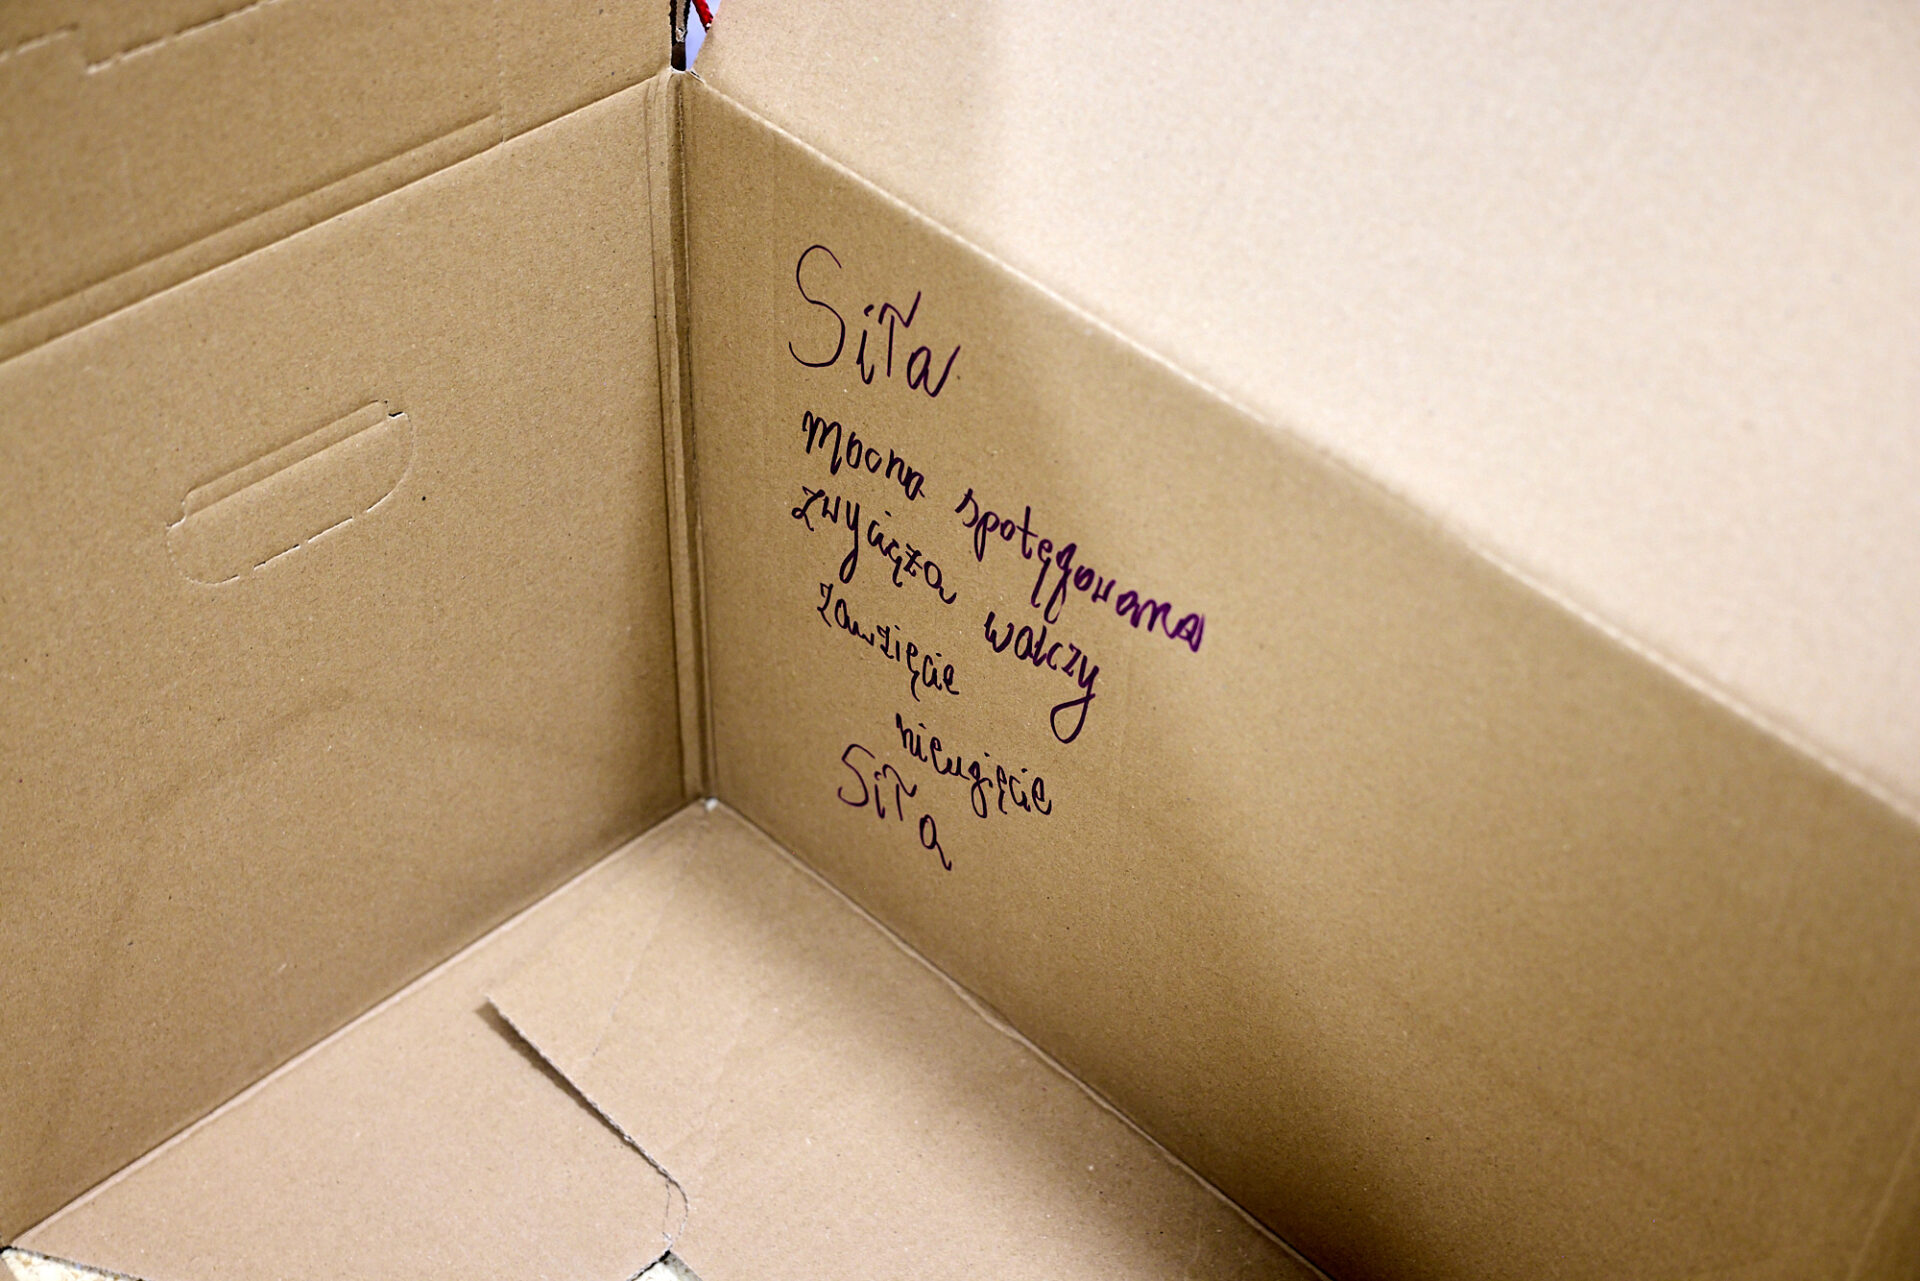 Siła
mocna spotęgowana
zwycięża walczy
zawzięcie
nieugięcie
Siła